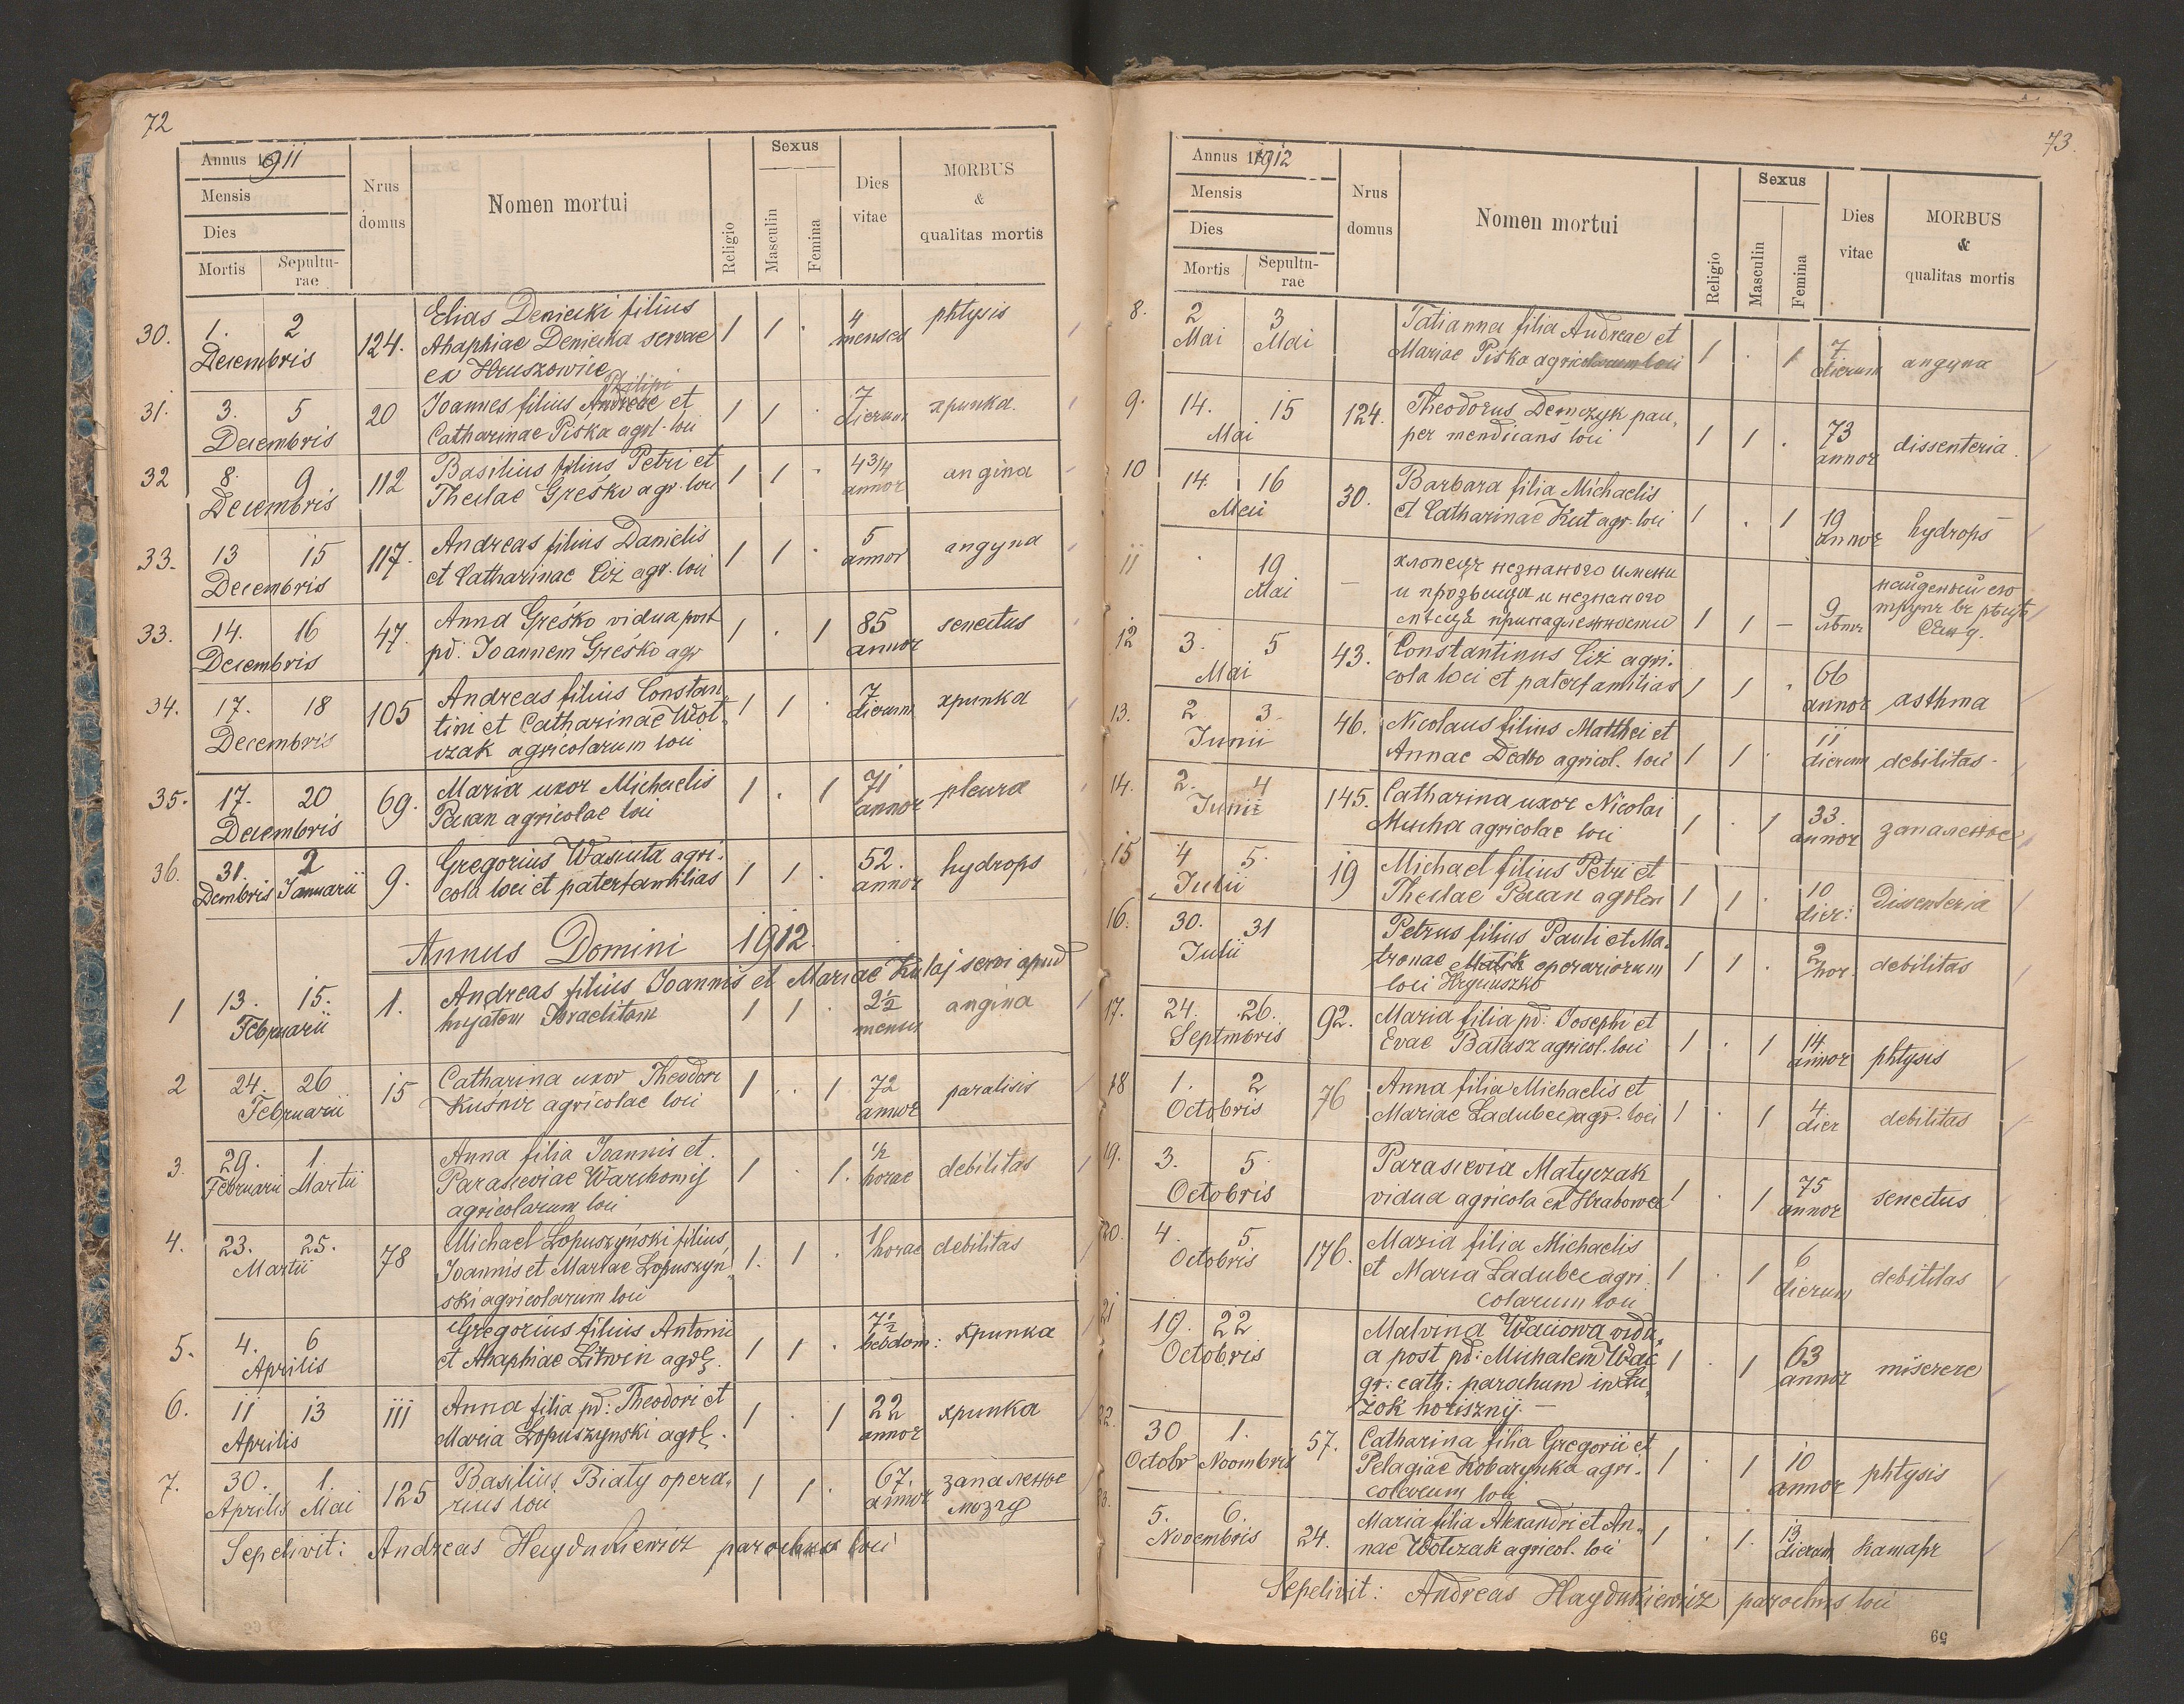 72
Annus 1911
Mensis
Dies
Mortis
Sepultu-
rae
Nrus
domus
Nomen mortui
Religio
Sexus
Masculin
Femina
Dies
vitae
MORBUS
&
qualitas mortis
30. 1. 2 Decembris 124. Elias Deniecki filius
Ahaphiae Deniecka servae
ex Hruszowice 1 1 . 4 menses phtysis
31. 3. 5 Decembris 20 Joannes filius Andreae Philipi et
Catharinae Piśka agri. loci 1 1 . 7 dierum хрипка.
32 8. 9 Decembris 112 Basilius filius Petri et
Theclae Greśko agr. loci 1 1 . 4 3/4 annor angina
33. 13 15 Decembris 117. Andreas filius Danielis
et Catharinae Ciż agr. loci 1 1 . 5 annor angyna
33. 14. 16 Decembris 47. Anna Greśko vidua post
pd: Joannem Greśko agr 1 . 1 85 annor senectus
34. 17. 18 Decembris 105 Andreas filius Constan
tini et Catharinae Woł-
czak agricolarum loci 1 1 . 7 dierum хрипка
35. 17. 20 Decembris 69. Maria uxor Michaelis
Pacan agricolae loci 1 . 1 71 annor pleura
36. 31. Dcembris 2 Januarii 9. Gregorius Wasiuta agri-
cola loci et paterfamilias 1 1 . 52. annor hydrops
Annus Domini 1912.
1 13. 15. Februarii 1. Andreas filius Joannis et Mariae Kulaj servi apud
hujatem Israelitam 1 1 . 2 1/2 mensis angina
2 24. 26 Februarii 15 Catharina uxor Theodori
Kuśnir agricolae loci 1 . 1 72 annor paralisis
3. 29. Februarii 1. Martii Anna filia Joannis et
Parasceviae Warchomij
agricolarum loci 1 . 1. 1/2 horae debilitas
4. 23. 25. Martii 78 Michael Łopuszyński filius
Joannis et Mariae Łopuszyń
ski agricolarum loci 1. 1 . 1 horae debilitas
5. 4. 6 Aprilis Gregorius filius Antonii
et Ahaphiae Litwin agr. 1 1 . 7 1/2 hebdom: хрипка
6. 11 13 Aprilis 111 Anna filia pd: Theodori et
Maria Łopuszynski agr. 1 . 1 22 annor хрипка
7. 30. Aprilis 1. Mai 125 Basilius Biały opera-
rius loci 1 1 . 67. annor запаленье
мозгу
Sepelivit: Andreas Haydukiewicz parochus loci
73.
Annus 1912
Mensis
Dies
Mortis
Sepultu-
rae
Nrus
domus
Nomen mortui
Religio
Sexus
Masculin
Femina
Dies
vitae
MORBUS
&
qualitas mortis
8. 2 Mai 3 Mai Tatianna filia Andreae et
Mariae Piśka agricolarum loci 1 . 1 7 dierum angyna
9. 14. 15 Mai 124. Theodorus Demczyk pau-
per mendicans loci 1 1 . 73 annor dissenteria.
10 14 16 Mai 30. Barbara filia Michaelis
et Catharinae Kut agr. loci 1 . 1 19 annor hydrops
11 . 19 Mai — хлопець незнаного имени
и прозвища и незнаного
мѣсця принадлежности 1 1 — 9 лѣт найденый его
трупъ въ рѣцѣ
Сян д.
12 3. 5 Mai 43. Constantinus Ciż agri-
cola loci et paterfamilias 1 1 . 66 annor asthma
13. 2 3. Junii 46. Nicolaus filius Matthei et
Annae Dedio agricol. loci 1 1 . 11 dierum debilitas
14. 2. 4 Junii 145. Catharina uxor Nicolai
Mucha agricolae loci 1 . 1 33. annor запаленье
15 4 5. Julii 19 Michael filius Petri et
Theclae Pacan agr. loci 1 1 . 10 dier: Dissenteria
16. 30. 31 Julii Petrus filius Pauli et Ma-
tronae Malik operariorum
loci 1 1 . 2 hor. debilitas
17. 24. 26. Septmbris 92. Maria filia pd: Josephi et
Evae Bałasz agricol. loci 1 . 1 14 annor phtysis
18 1. 2 Octobris 76 Anna filia Michaelis et
Mariae Ładubec agr. loci 1 . 1 4 dier debilitas
19. 3. 5 Octobris Parascevia Matyczak
vidua agricola ex Hrabowec 1 . 1 75 annor senectus
20. 4. 5 Octobris 176. Maria filia Michaelis
et Maria Ładubec agri
colarum loci 1 . 1 6 dierum debilitas
21 19. 22 Octobris Malvina Waciowa vidu-
a post pd: Michalem Wać
gr: cath: parochum in Łu-
żok horisznij — 1 . 1 63 annor miserere
22. 30 Octobr 1. Noombris 57. Catharina filia Gregorii et
Pelagiae Kobarynka agri-
colarum loci 1 . 1 10 annor phtysis
23. 5. 6. Novembris 24. Maria filia Alexandri et An-
nae Wołczak agricol. loci 1 . 1. 13 dierum катар
Sepelivit: Andreas Haydukiewicz parochus loci
69